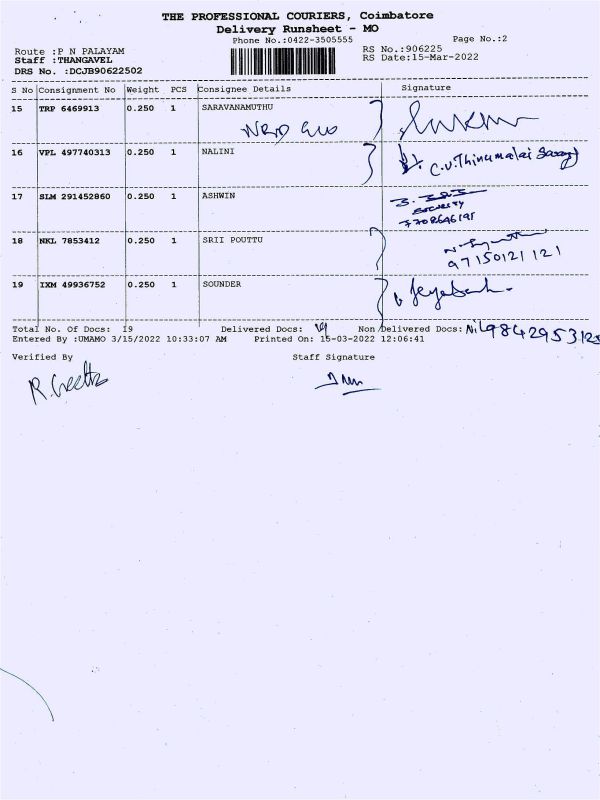 THE PROFESSIONAL COURIERS, Coimbatore
Delivery Runsheet - MO
Phone No.:0422-3505555 Page No.:2
Route :P N PALAYAM RS No.:906225
Staff :THANGAVEL RS Date:15-Mar-2022
DRS No. :DCJB90622502
S No Consignment No Weight PCS Consignee Details Signature
15 TRP 6469913 0.250 1 SARAVANAMUTHU
16 VPL 497740313 0.250 1 NALINI
C.V.Thirumalai
17 SLM 291452860 0.250 1 ASHWIN
Security
7708646191
18 NKL 7853412 0.250 1 SRII POUTTU
97150121 121
19 IXM 49936752 0.250 1 SOUNDER
Total No. Of Docs: 19 Delivered Docs: 19 Non Delivered Docs: Nil 984295312
Entered By :UMAMO 3/15/2022 10:33:07 AM Printed On: 15-03-2022 12:06:41
Verified By Staff Signature